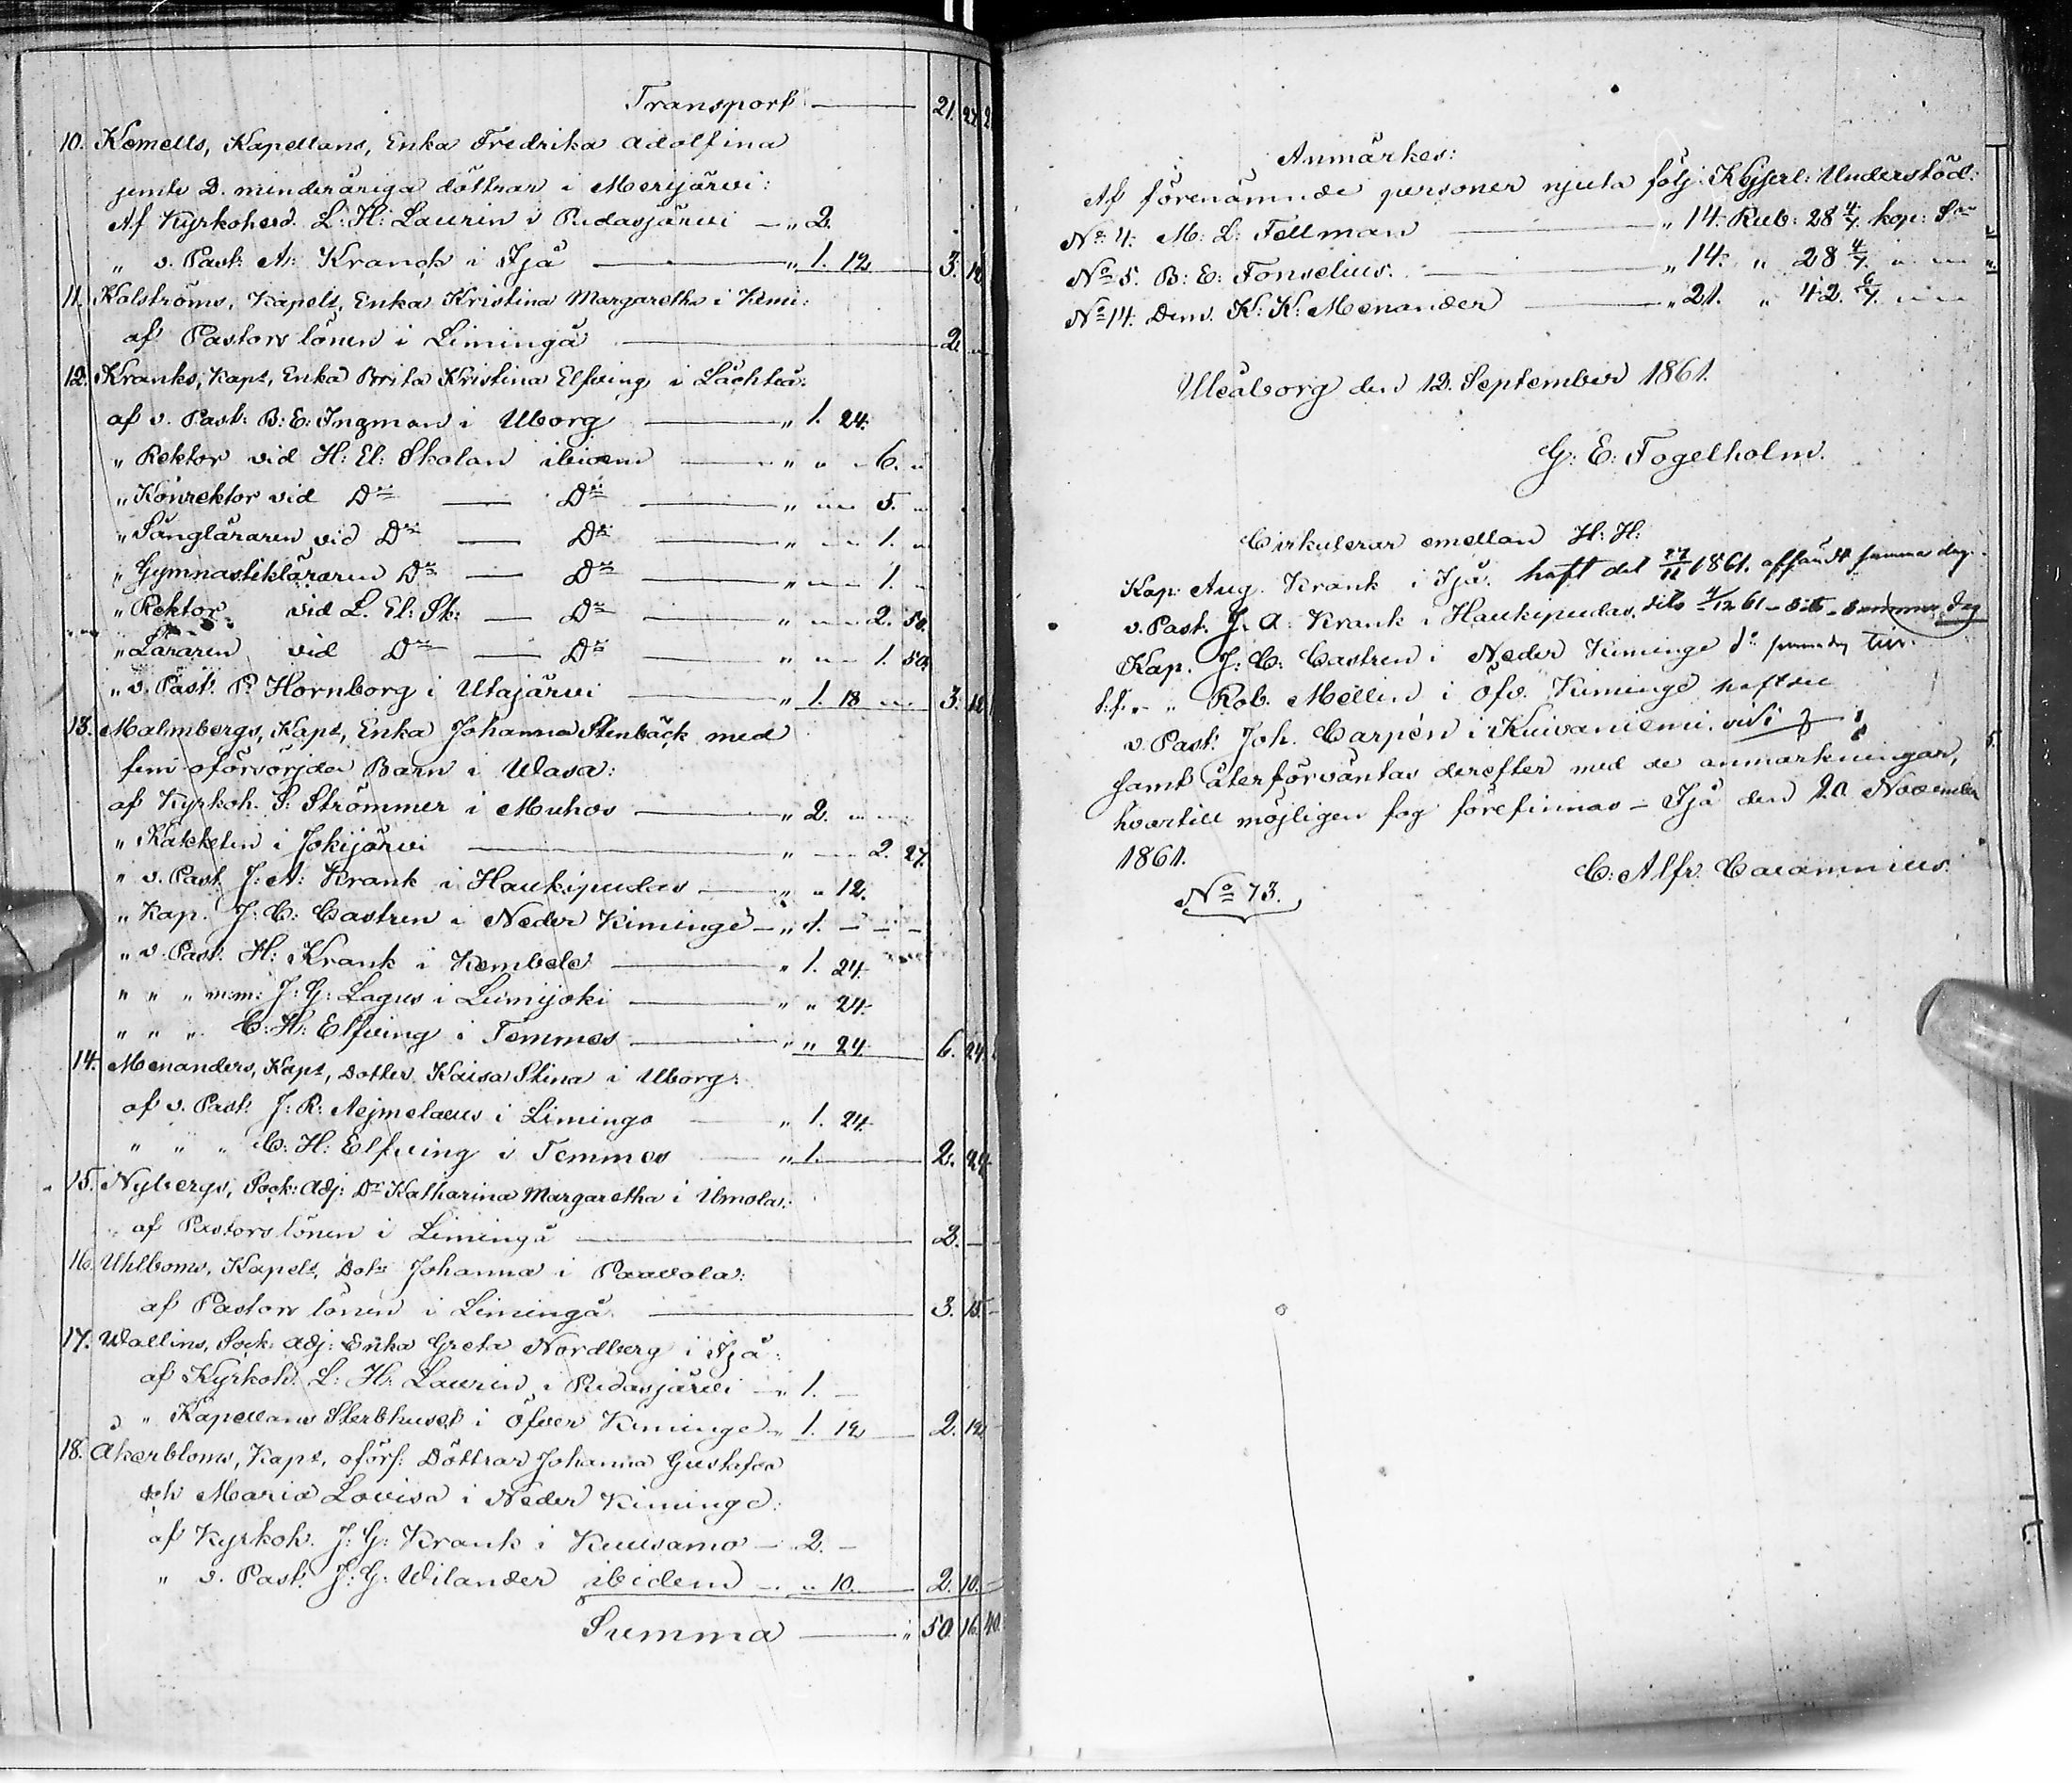 Transport — 21. 27. 2
10. Kemells, Kapellans, Enka Fredrika Adolfina
jemte 2. minderåriga döttrar i Merijärvi:
Af Kyrkoherd. L: H: Laurin i Pudasjärvi — " 2.
" v. Past: A: Kranck i Ijå — " 1. 12 3. 12
11. Kolströms, Kapels, Enka Kristina Margaretha i Kemi:
af Pastors lönen i Limingå — 2. "
12. Kranks, Kaps, Enka Brita Kristina Elfving i Lachteå:
af v. Past: B: E: Ingman i Uborg — " 1. 24.
" Rektor vid H: El: Skolan ibidem — " " 6. "
" Konrektor vid Do — Do — " " 5. "
" Sångläraren vid Do — Do — " " 1. "
" Gymnastikläraren Do — Do — " " 1. "
" Rektor vid L. El: Sk: — Do — " " 2. 50.
" Läraren vid Do — Do — " " 1. 50.
" v. Past. P. Hornborg i Utajärvi — " 1. 18 " 3. 12
13. Malmbergs, Kaps, Enka Johanna Stenbäck med
fem oförsörjda Barn i Wasa:
af Kyrkoh. S: Strömmer i Muhos — " 2. " "
" Katekten i Jokijärvi — " — 2. 27.
" v. Past J: A: Krank i Haukipudas — " " 12.
" Kap. J: C: Castren i Neder Kiminge — " 1. — — —
" v. Past. H: Krank i Kembele — " 1. 24.
" " " m.m: J: G: Lagus i Lumijoki — " " 24.
" " " C: H: Elfving i Temmes — " " 24. 6. 24.
14. Menanders, Kaps, Dotter Kaisa Stina i Uborg:
af v. Past. J: R: Aejmelaeus i Limingo — " 1. 24.
" " " C: H: Elfving i Temmes — " 1. 2. 24.
15. Nybergs, Sock: Adj: Dr Katharina Margaretha i Ilmola:
af Pastors lönen i Limingå — 2. —
16. Uhlboms, Kapels, Dotr Johanna i Paavola:
af Pastors lönen i Limingå — 3. 15. —
17. Wallins, Sock: Adj: Enka Greta Nordberg i Ijå:
af Kyrkoh. L: H: Laurin i Pudasjärvi — " 1. —
" Kapellans Sterbhuset i Öfver Kiminge — " 1. 12 2. 12. —
18. Åkerbloms, Kaps, oförs: Döttrar Johanna Gustafva
och Maria Lovisa i Neder Kiminge:
af Kyrkoh. J: G: Krank i Kuusamo — 2. —
" v. Past. J: G: Wilander ibidem — " 10. 2. 10. —
Summa — " 50. 16. 40.
Anmärkes:
Af förenämnde personer njuta följ: Kejserl: Understöd:
No 4. M: L: Fellman — " 14. Rub: 28 4/7. kop: Sr
No 5. B: E: Fonselius. — " 14. " 28 4/7. " "
No 14. Dem. K: K: Menander — " 21. " 42. 6/7. " "
Uleåborg den 12. September 1861.
G: E: Fogelholm.
Cirkulerar emellan H: H:
Kap: Aug. Krank i Ijå. haft det 27/11 1861. afsändt samma dag.
v. Past. J. A: Krank i Haukipudas. dito 4/12 61 — dito — samma dag
Kap. J: C: Castren i Neder Kiminge do samma dag
" Rob. Mellin i Öfv. Kiminge haft
v. Past. Joh. Carpén i Kuivaniemi. vidi
samt återförväntas derefter med de anmärkningar,
hvartill möjligen fog förefinnas — Ijå den 20 November
1861.
C: Alfr. Calamnius.
No 73.